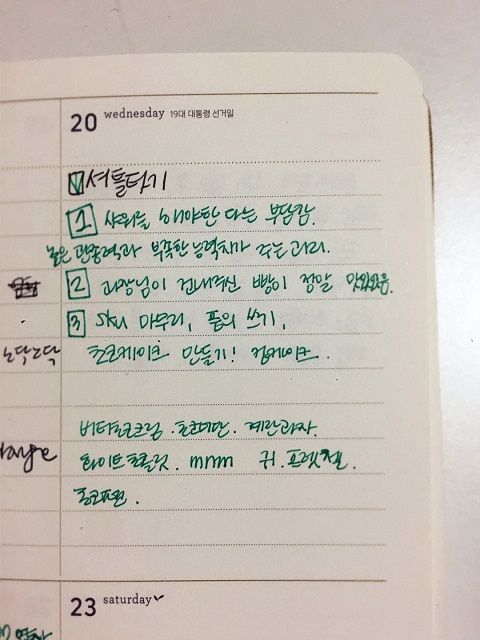 20 wednesday 19대 대통령 선거일
셔틀타기
1 샤워를 해야한다는 부담감.
높은 관종력과 부족한 능력치가 주는 괴리.
2 과장님이 건내주신 빵이 정말 맛있었음.
3 sku 마무리, 품의 쓰기,
노닥노닥 초코케이크 만들기! 컵케이크.
버터초코크림. 초코계란. 계란과자.
화이트초콜릿. mnm 귀. 프렛첼.
초코펜.
23 saturday